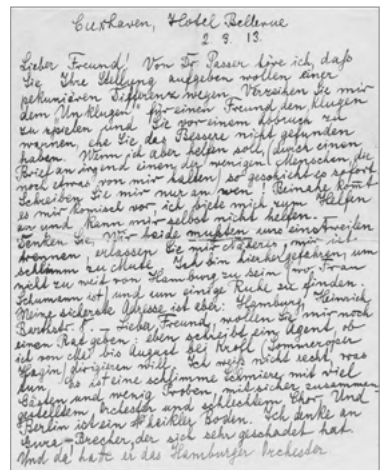 Cuxhaven, Hotel Bellevue
2. 9. 13.
Lieber Freund! Von Dr. Passer höre ich, daß
Sie Ihre Stellung aufgeben wollen einer
pekuniären Differenz wegen. Verzeihen Sie mir
dem "Unklugen", für einen Freund den Klugen
zu spielen und Sie vor einem Abbruch zu
warnen, ehe Sie das Bessere nicht gefunden
haben. Wenn ich aber helfen soll, (durch einen
Brief an irgend einen der wenigen Menschen, die
noch etwas von mir halten) so geschieht es sofort
Schreiben Sie mir nur an wen! Beinahe kommt
es mir komisch vor, ich biete mich zum Helfen
an und kann mir selbst nicht helfen.
Denken Sie, wir beide mußten uns einstweilen
trennen, erlassen Sie mir Näheres, mir ist
schlimm zu Mute. Ich bin hierhergefahren, um
nicht zu weit von Hamburg zu sein (wo Frau
Schumann ist) und um einige Ruhe zu finden.
Meine sicherste Adresse ist aber: Hamburg, Heinrich
Barthstr. – Lieber Freund, wollen Sie mir noch
einen Rat geben: eben schreibt ein Agent, ob
ich von Mai bis August bei Kroll (Sommeroper
Hagin) dirigieren will. Ich weiß nicht recht, was
tun. Es ist eine schlimme Schmiere, mit viel
Gästen und wenig Proben, mit sicher zusammen
gestelltem Orchester und schlechtem Chor. Und
Berlin ist ein heikler Boden. Ich denke an
Brecher, der sich sehr geschadet hat.
Und da hatte er das Hamburger Orchester